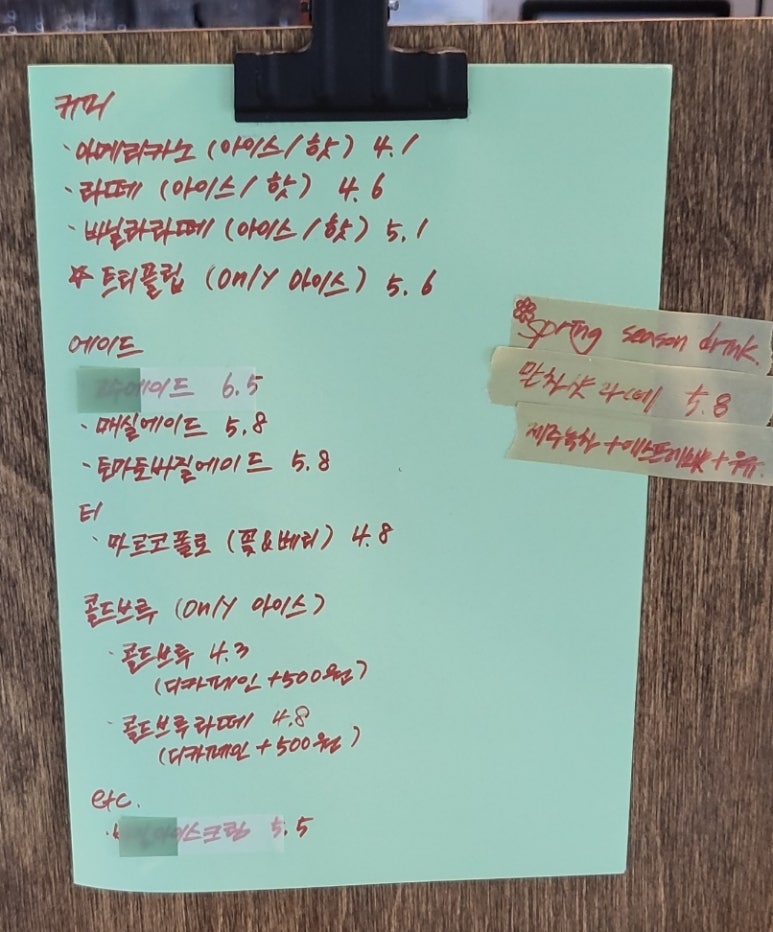 커피
· 아메리카노 (아이스/핫) 4.1
· 라떼 (아이스/핫) 4.6
· 바닐라라떼 (아이스/핫) 5.1
☆ 트리플럽 (only 아이스) 5.6
에이드
에이드 6.5
· 매실에이드 5.8
· 토마토바질에이드 5.8
티
· 마르코폴로 (꽃&베리) 4.8
콜드브루 (only 아이스)
· 콜드브루 4.3
(디카페인 +500원)
· 콜드브루라떼 4.8
(디카페인 +500원)
etc.
아이스크림 5.5
Spring season drink.
말차샷라떼 5.8
제주녹차+에스프레소+우유.